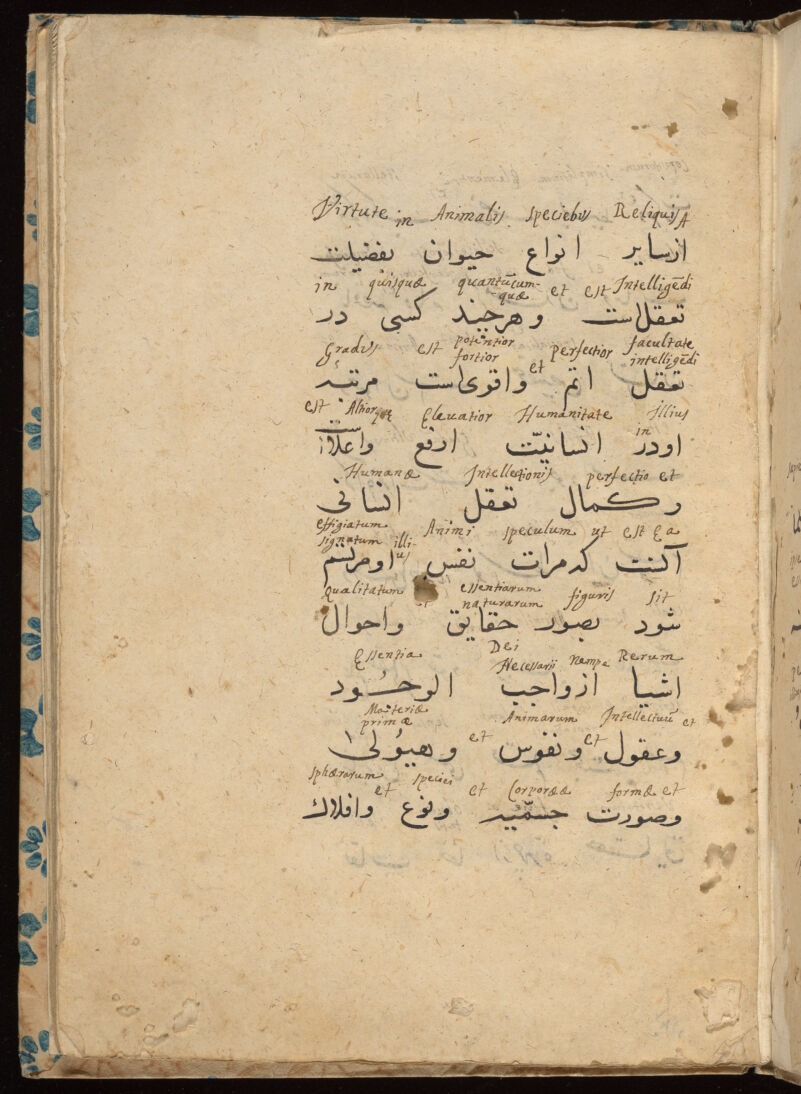 Virtute in Animalis speciebus Reliquis A
ازساير انواع حيوان بفضيلت
in quisquæ quantūcum-quæ et est Intelligēdi
تعقل‌است و هرچند كسى در
Gradus est potentior fortior et perfectior facultate intelligēdi
تعقل اتم واقوى‌است مرتبه
est Altior Eleuatior Humanitate Illius in
اودر انسانيّت ارفع واعلاست
Humanæ Intellectionis perfectio et
وكمال تعقل انسانى
effigiatum signatum illius Animi speculum ut est Ea
آنست كه مرات نفس او مرتسم
Qualitatum et essentiarum naturarum figuris sit
شود بصور حقايق واحوال
Essentia Dei Necessarij Nempe Rerum
اشيا ازواجب الوجُود
Materiæ primæ et Animarum et Intellectuū et
وعقول ونفوس وهيُولى
sphærarum et speciei et Corporææ formæ et
وصورت جسمّيه ونوع وافلاك